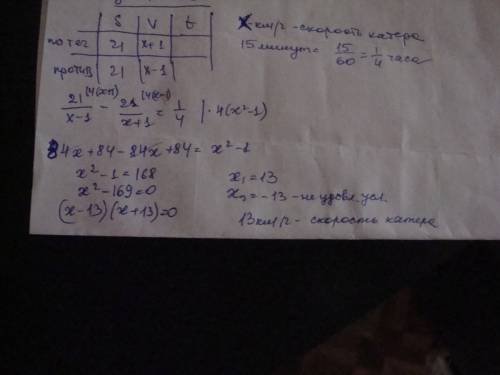 S | V | t
по теч | 21 | x+1 |
против | 21 | x-1 |
x км/ч - скорость катера
15 минут = 15/60 = 1/4 часа
21/(x-1) |4(x+1) - 21/(x+1) |4(x-1) = 1/4 | · 4(x²-1)
84x+84-84x+84 = x²-1
x²-1=168
x²-169=0
(x-13)(x+13)=0
x₁=13
x₂=-13 - не удовл. усл.
13 км/ч - скорость катера